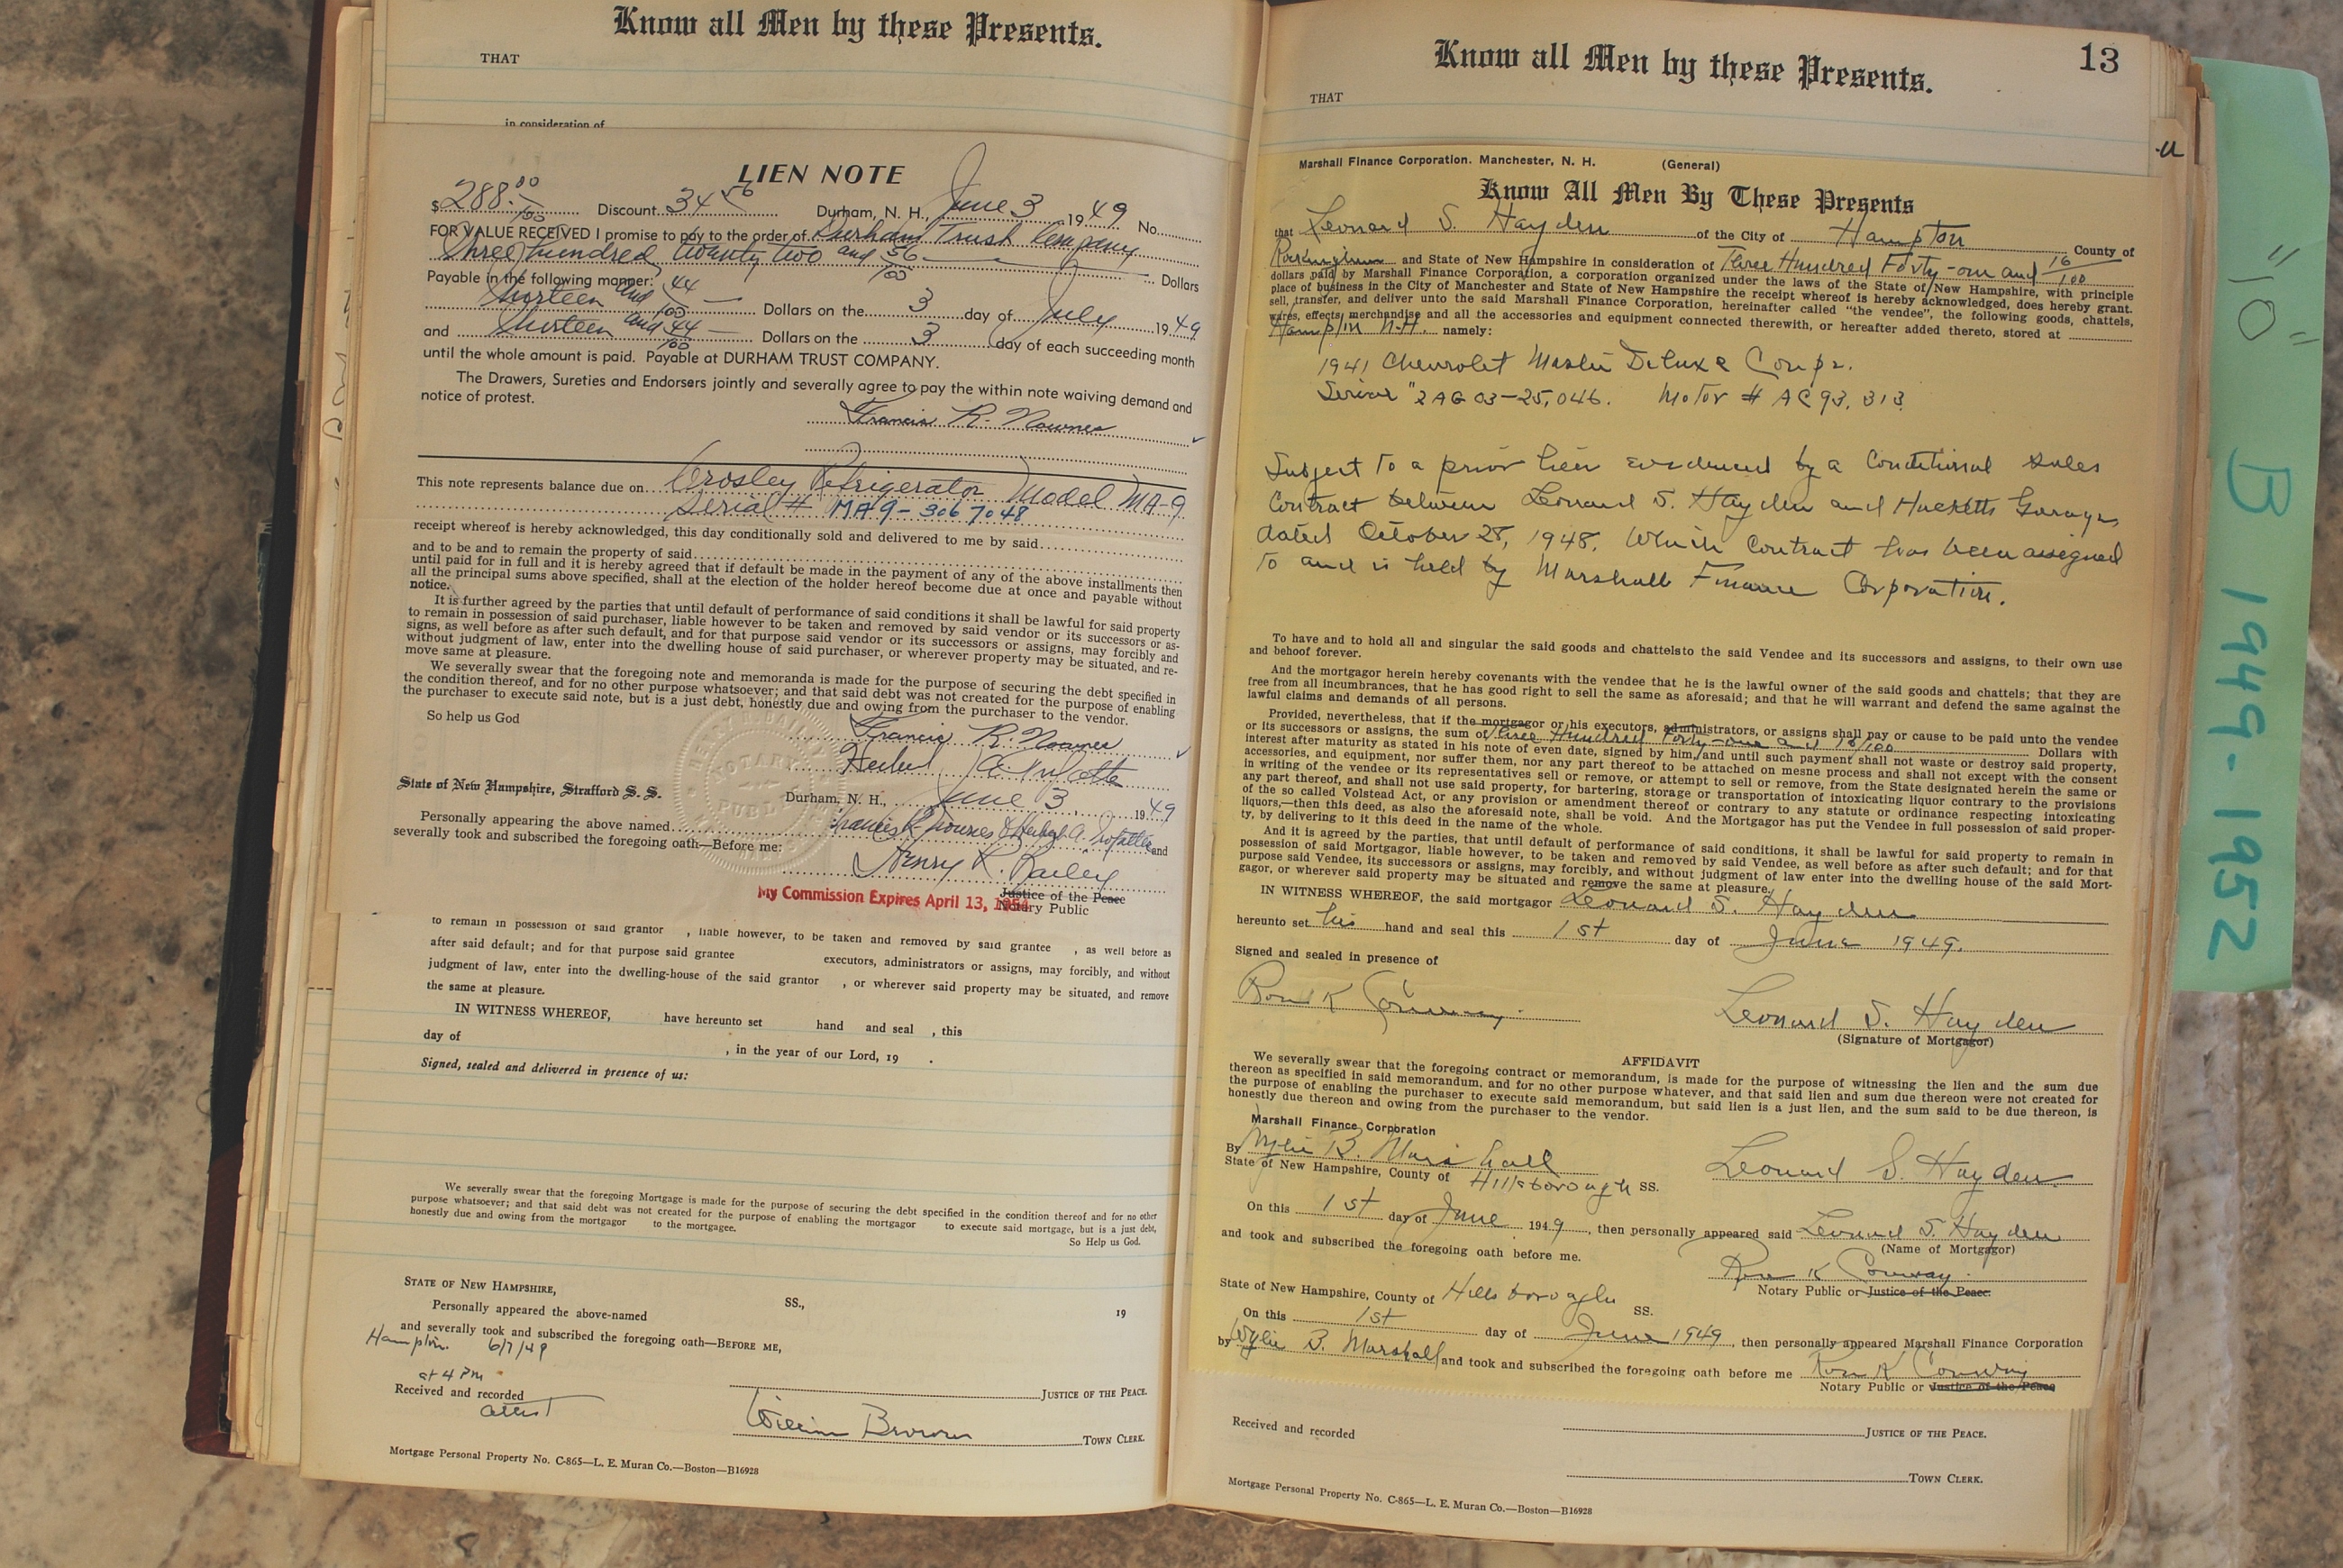 Know all Men by these Presents.
THAT
in consideration of
LIEN NOTE
$ 288.00/100 Discount 34.56 Durham, N. H., June 3 1949 No.
FOR VALUE RECEIVED I promise to pay to the order of Durham Trust Company
Three hundred twenty two and 56/100 Dollars
Payable in the following manner:
thirteen and 44/100 Dollars on the 3 day of July 1949
and thirteen and 44/100 Dollars on the 3 day of each succeeding month
until the whole amount is paid. Payable at DURHAM TRUST COMPANY.
The Drawers, Sureties and Endorsers jointly and severally agree to pay the within note waiving demand and
notice of protest.
Francis R.
This note represents balance due on Crosley Refrigerator Model MA-9
Serial # MA9-3067048
receipt whereof is hereby acknowledged, this day conditionally sold and delivered to me by said
and to be and to remain the property of said
until paid for in full and it is hereby agreed that if default be made in the payment of any of the above installments then
all the principal sums above specified, shall at the election of the holder hereof become due at once and payable without
notice.
It is further agreed by the parties that until default of performance of said conditions it shall be lawful for said property
to remain in possession of said purchaser, liable however to be taken and removed by said vendor or its successors or as-
signs, as well before as after such default, and for that purpose said vendor or its successors or assigns, may forcibly and
without judgment of law, enter into the dwelling house of said purchaser, or wherever property may be situated, and re-
move same at pleasure.
We severally swear that the foregoing note and memoranda is made for the purpose of securing the debt specified in
the condition thereof, and for no other purpose whatsoever; and that said debt was not created for the purpose of enabling
the purchaser to execute said note, but is a just debt, honestly due and owing from the purchaser to the vendor.
So help us God
Francis R.
State of New Hampshire, Strafford S. S.
Durham, N. H., June 3, 1949
Personally appearing the above named Francis R. & and
severally took and subscribed the foregoing oath—Before me:
Henry R. Bailey
My Commission Expires April 13,
Justice of the Peace
Notary Public
to remain in possession of said grantor , liable however, to be taken and removed by said grantee , as well before as
after said default; and for that purpose said grantee executors, administrators or assigns, may forcibly, and without
judgment of law, enter into the dwelling-house of the said grantor , or wherever said property may be situated, and remove
the same at pleasure.
IN WITNESS WHEREOF, have hereunto set hand and seal , this
day of , in the year of our Lord, 19 .
Signed, sealed and delivered in presence of us:
We severally swear that the foregoing Mortgage is made for the purpose of securing the debt specified in the condition thereof and for no other
purpose whatsoever; and that said debt was not created for the purpose of enabling the mortgagor to execute said mortgage, but is a just debt,
honestly due and owing from the mortgagor to the mortgagee.
So Help us God.
STATE OF NEW HAMPSHIRE, SS., 19
Personally appeared the above-named
and severally took and subscribed the foregoing oath—BEFORE ME,
Hampton. 6/7/49
at 4 PM
Received and recorded JUSTICE OF THE PEACE.
attest William Brown TOWN CLERK.
Mortgage Personal Property No. C-865—L. E. Muran Co.—Boston—B16928
Know all Men by these Presents. 13
THAT
Marshall Finance Corporation. Manchester, N. H. (General)
Know All Men By These Presents
that Leonard S. Hayden of the City of Hampton County of
Rockingham and State of New Hampshire in consideration of Three Hundred Forty-one and 16/100
dollars paid by Marshall Finance Corporation, a corporation organized under the laws of the State of New Hampshire, with principle
place of business in the City of Manchester and State of New Hampshire the receipt whereof is hereby acknowledged, does hereby grant.
sell, transfer, and deliver unto the said Marshall Finance Corporation, hereinafter called "the vendee", the following goods, chattels,
wares, effects, merchandise and all the accessories and equipment connected therewith, or hereafter added thereto, stored at
Hampton N.H. namely:
1941 Chevrolet Master Deluxe Coupe.
Serial "2AG03-25,046. Motor # AC93,313
Subject to a prior lien evidenced by a Conditional Sales
Contract between Leonard S. Hayden and Hacketts Garage
dated October 28, 1948. Which Contract has been assigned
to and is held by Marshall Finance Corporation.
To have and to hold all and singular the said goods and chattelsto the said Vendee and its successors and assigns, to their own use
and behoof forever.
And the mortgagor herein hereby covenants with the vendee that he is the lawful owner of the said goods and chattels; that they are
free from all incumbrances, that he has good right to sell the same as aforesaid; and that he will warrant and defend the same against the
lawful claims and demands of all persons.
Provided, nevertheless, that if the mortgagor or his executors, administrators, or assigns shall pay or cause to be paid unto the vendee
or its successors or assigns, the sum of Three Hundred Forty-one and 16/100 Dollars with
interest after maturity as stated in his note of even date, signed by him, and until such payment shall not waste or destroy said property,
accessories, and equipment, nor suffer them, nor any part thereof to be attached on mesne process and shall not except with the consent
in writing of the vendee or its representatives sell or remove, or attempt to sell or remove, from the State designated herein the same or
any part thereof, and shall not use said property, for bartering, storage or transportation of intoxicating liquor contrary to the provisions
of the so called Volstead Act, or any provision or amendment thereof or contrary to any statute or ordinance respecting intoxicating
liquors,—then this deed, as also the aforesaid note, shall be void. And the Mortgagor has put the Vendee in full possession of said proper-
ty, by delivering to it this deed in the name of the whole.
And it is agreed by the parties, that until default of performance of said conditions, it shall be lawful for said property to remain in
possession of said Mortgagor, liable however, to be taken and removed by said Vendee, as well before as after such default; and for that
purpose said Vendee, its successors or assigns, may forcibly, and without judgment of law enter into the dwelling house of the said Mort-
gagor, or wherever said property may be situated and remove the same at pleasure.
IN WITNESS WHEREOF, the said mortgagor Leonard S. Hayden
hereunto set his hand and seal this 1st day of June 1949.
Signed and sealed in presence of
Ron K Conway Leonard S. Hayden
(Signature of Mortgagor)
AFFIDAVIT
We severally swear that the foregoing contract or memorandum, is made for the purpose of witnessing the lien and the sum due
thereon as specified in said memorandum, and for no other purpose whatever, and that said lien and sum due thereon were not created for
the purpose of enabling the purchaser to execute said memorandum, but said lien is a just lien, and the sum said to be due thereon, is
honestly due thereon and owing from the purchaser to the vendor.
Marshall Finance Corporation
By Wylie B. Marshall Leonard S. Hayden
State of New Hampshire, County of Hillsborough SS.
On this 1st day of June 1949, then personally appeared said Leonard S. Hayden
(Name of Mortgagor)
and took and subscribed the foregoing oath before me.
Ron K Conway
Notary Public or Justice of the Peace.
State of New Hampshire, County of Hillsborough SS.
On this 1st day of June 1949, then personally appeared Marshall Finance Corporation
by Wylie B. Marshall and took and subscribed the foregoing oath before me Ron K Conway
Notary Public or Justice of the Peace
Received and recorded JUSTICE OF THE PEACE.
TOWN CLERK.
Mortgage Personal Property No. C-865—L. E. Muran Co.—Boston—B16928
"10" B 1949-1952